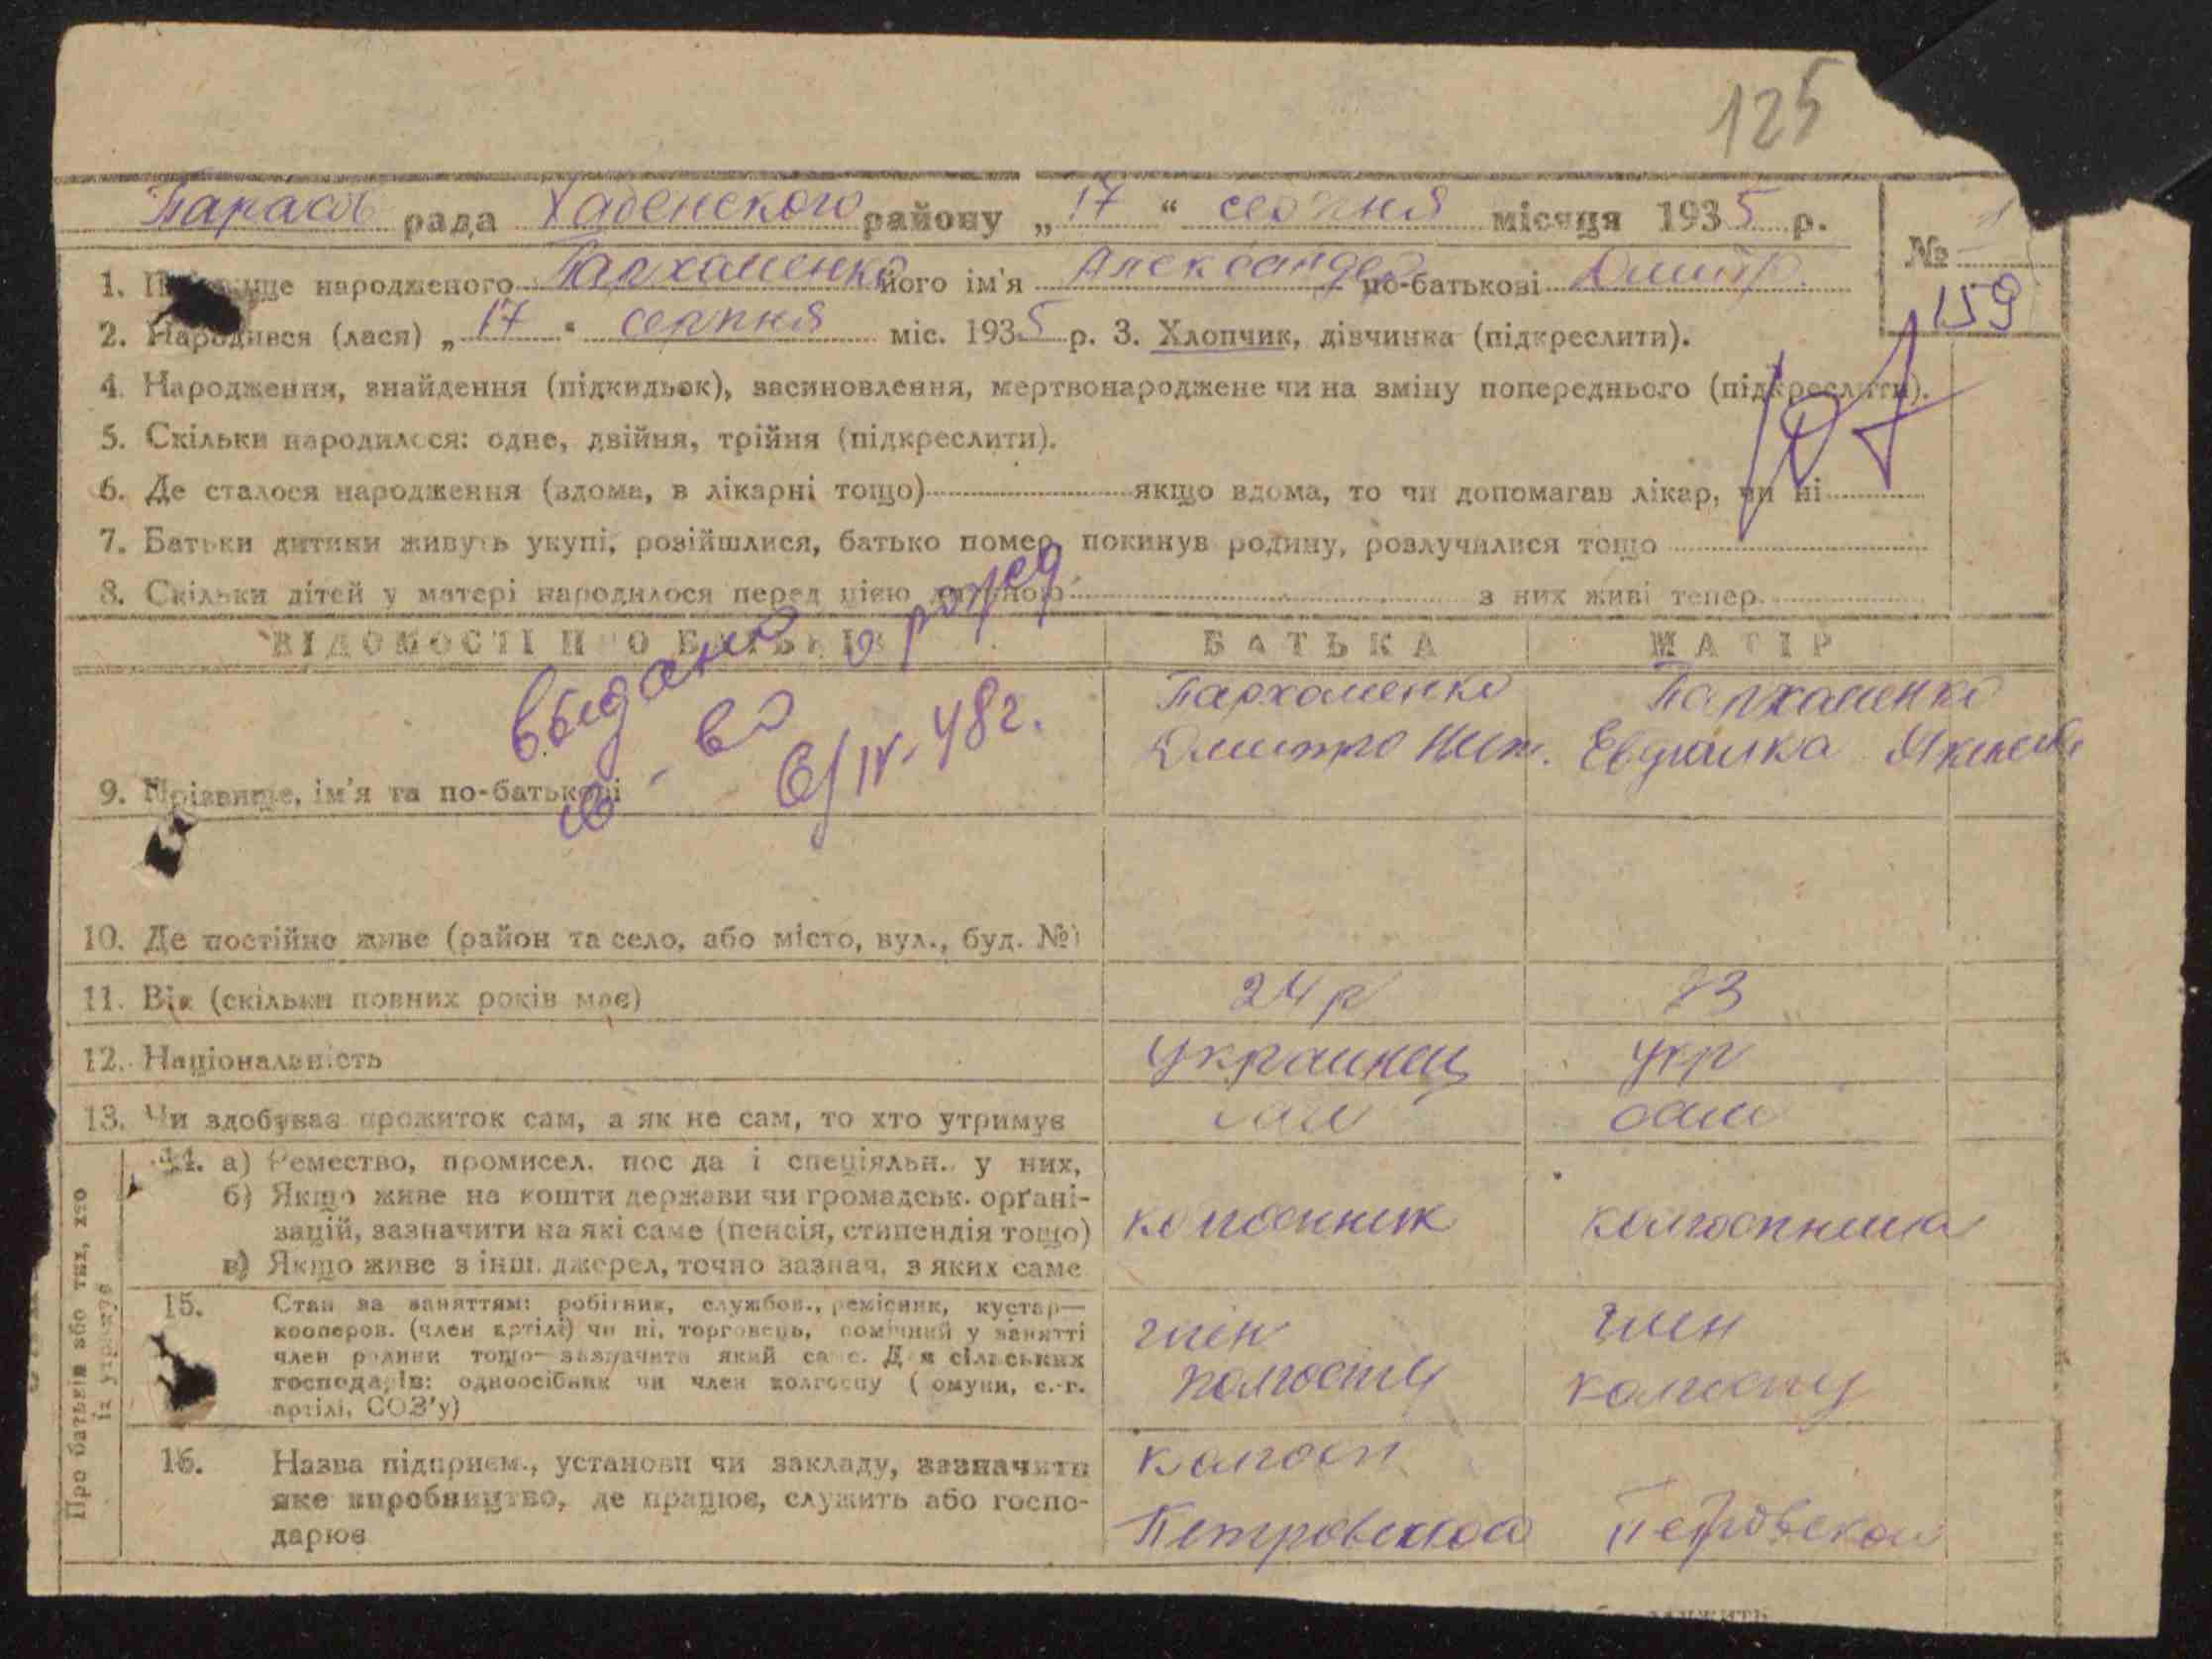 125
рада Хабенского району „ 17 “ серпня місяця 1935 р.
№ 1
159
1. народженого Пархоменко його ім'я Александер по-батькові Дмитр.
2. Народився (лася) „ 17 “ серпня міс. 1935 р. 3. Хлопчик, дівчинка (підкреслити).
4. Народження, знайдення (підкидьок), засиновлення, мертвонароджене чи на зміну попереднього (підкреслити).
5. Скільки народилося: одне, двійня, трійня (підкреслити).
6. Де сталося народження (вдома, в лікарні тощо) якщо вдома, то чи допомагав лікар, чи ні
7. Батьки дитини живуть укупі, розійшлися, батько помер, покинув родину, розлучилися тощо
8. Скільки дітей у матері народилося перед цією дитиною з них живі тепер
ВІДОМОСТІ ПРО БАТЬКІВ БАТЬКА МАТІР
выдано о рожд
с-во
6/IV-48г.
9. Прізвище, ім'я та по-батькові
Пархоменко
Дмитро
Пархоменко
10. Де постійно живе (район та село, або місто, вул., буд. №)
11. Вік (скільки повних років має) 24 р 23
12. Національність Украинец Укр
13. Чи здобуває прожиток сам, а як не сам, то хто утримує сам сам
Про батьків або тих, хто їх утримує
14. а) Ремество, промисел, посада і спеціяльн. у них,
б) Якщо живе на кошти держави чи громадськ. орґані-
зацій, зазначити на які саме (пенсія, стипендія тощо)
в) Якщо живе з інш. джерел, точно зазнач. з яких саме
колгоспник колгоспниця
15. Стан за заняттям: робітник, службов., ремісник, кустар—
кооперов. (член артілі) чи ні, торговець, помічний у занятті
член родини тощо—зазначити який саме. Для сільських
господарів: одноосібник чи член колгоспу (комуни, с.-г.
артілі, СОЗ'у)
член
колгоспу
член
колгоспу
16. Назва підприєм., установи чи закладу, зазначити
яке виробництво, де працює, служить або госпо-
дарює
колгосп
Петровского Петровского